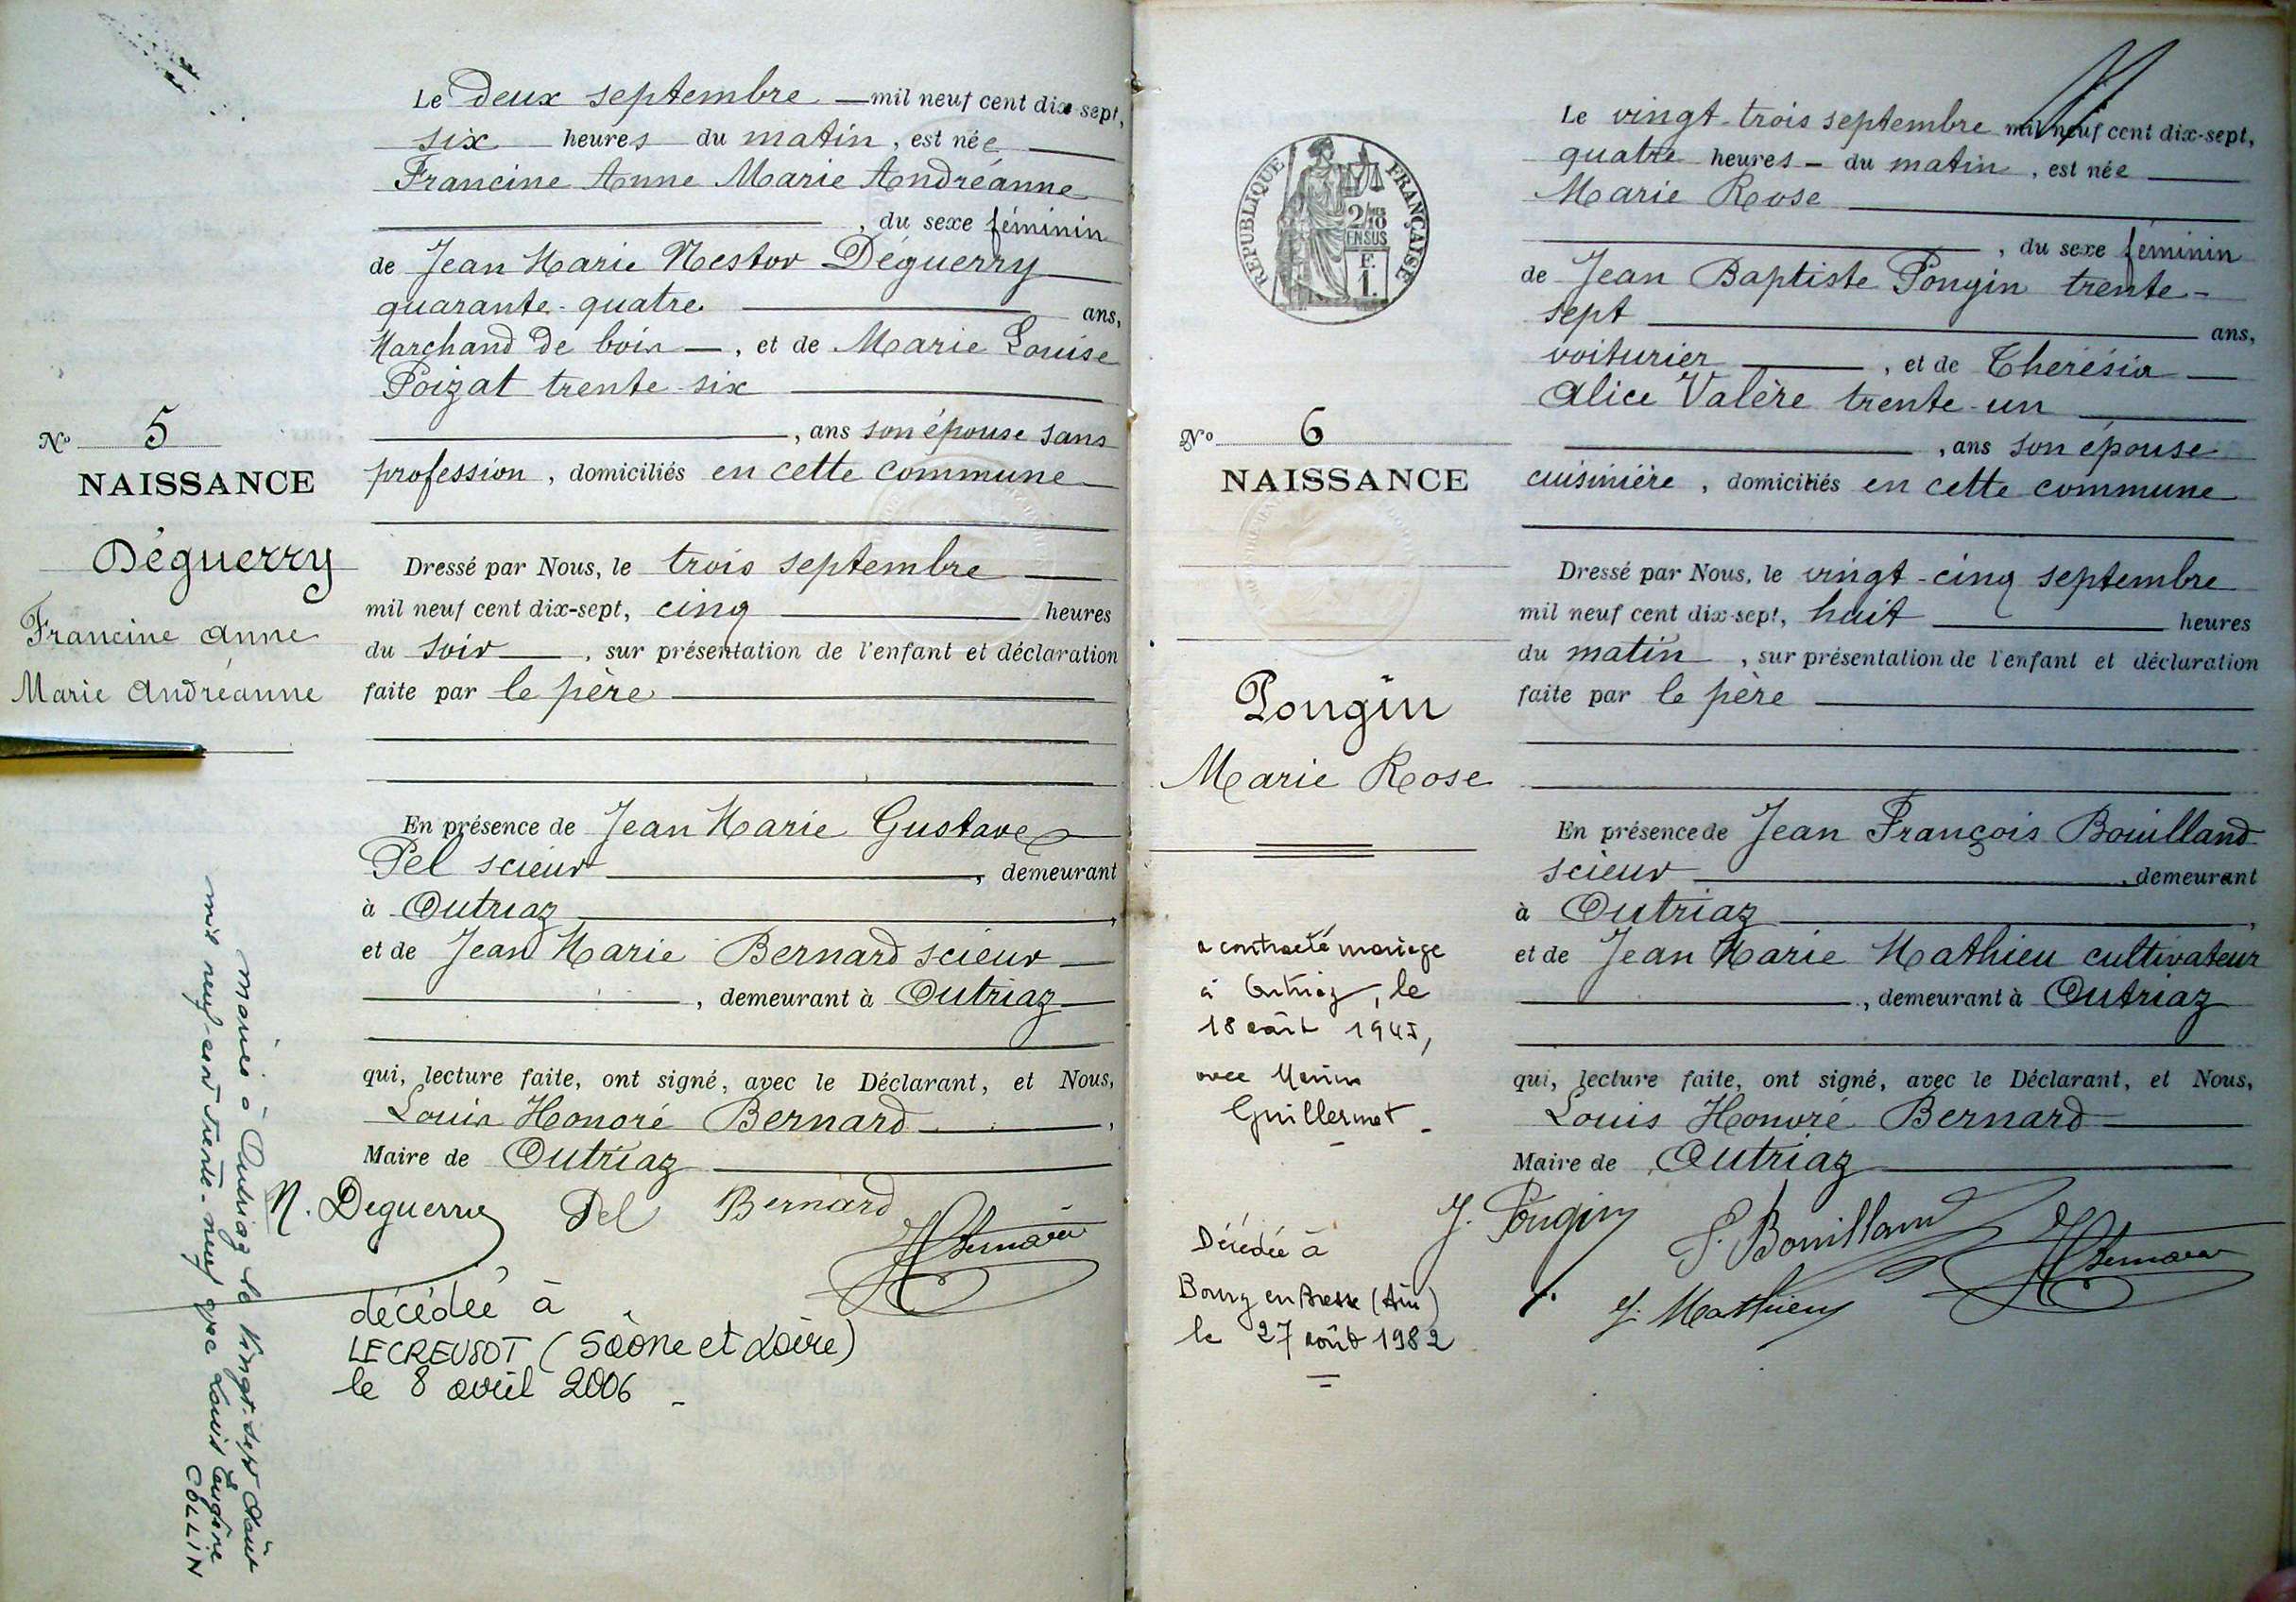 Le deux septembre mil neuf cent dix-sept,
six heures du matin, est née
Francine Anne Marie Andréanne
, du sexe féminin
de Jean Marie Nestor Déguerry
quarante-quatre ans,
Marchand de bois, et de Marie Louise
Poizat trente six
, ans son épouse sans
profession, domiciliés en cette commune
N° 5
NAISSANCE
Déguerry
Francine Anne
Marie Andréanne
Dressé par Nous, le trois septembre
mil neuf cent dix-sept, cinq heures
du soir, sur présentation de l'enfant et déclaration
faite par le père
En présence de Jean Marie Gustave
Pel scieur, demeurant
à Outriaz,
et de Jean Marie Bernard scieur
, demeurant à Outriaz
qui, lecture faite, ont signé, avec le Déclarant, et Nous,
Louis Honoré Bernard,
Maire de Outriaz
N. Deguerry Pel Bernard
HBernard
mariée à Outriaz le vingt-sept Août
mil neuf-cent trente-neuf avec Louis Eugène
COLLIN
décédée à
LE CREUSOT (Saône et Loire)
le 8 avril 2006
RÉPUBLIQUE FRANÇAISE
2/10
EN SUS
F.
1.
N° 6
NAISSANCE
Pongin
Marie Rose
a contracté mariage
à Outriaz, le
18 août 1945,
avec
Guillermet
Décédée à
Bourg en Bresse (Ain)
le 27 août 1982
Le vingt-trois septembre mil neuf cent dix-sept,
quatre heures du matin, est née
Marie Rose
, du sexe féminin
de Jean Baptiste Pongin trente-
sept ans,
voiturier, et de Thérésia
Alice Valère trente-un
, ans son épouse
cuisinière, domiciliés en cette commune
Dressé par Nous, le vingt-cinq septembre
mil neuf cent dix-sept, huit heures
du matin, sur présentation de l'enfant et déclaration
faite par le père
En présence de Jean François Bouilland
scieur, demeurant
à Outriaz,
et de Jean Marie Mathieu cultivateur
, demeurant à Outriaz
qui, lecture faite, ont signé, avec le Déclarant, et Nous,
Louis Honoré Bernard
Maire de Outriaz
J. Pongin F. Bouilland
HBernard
J. Mathieu